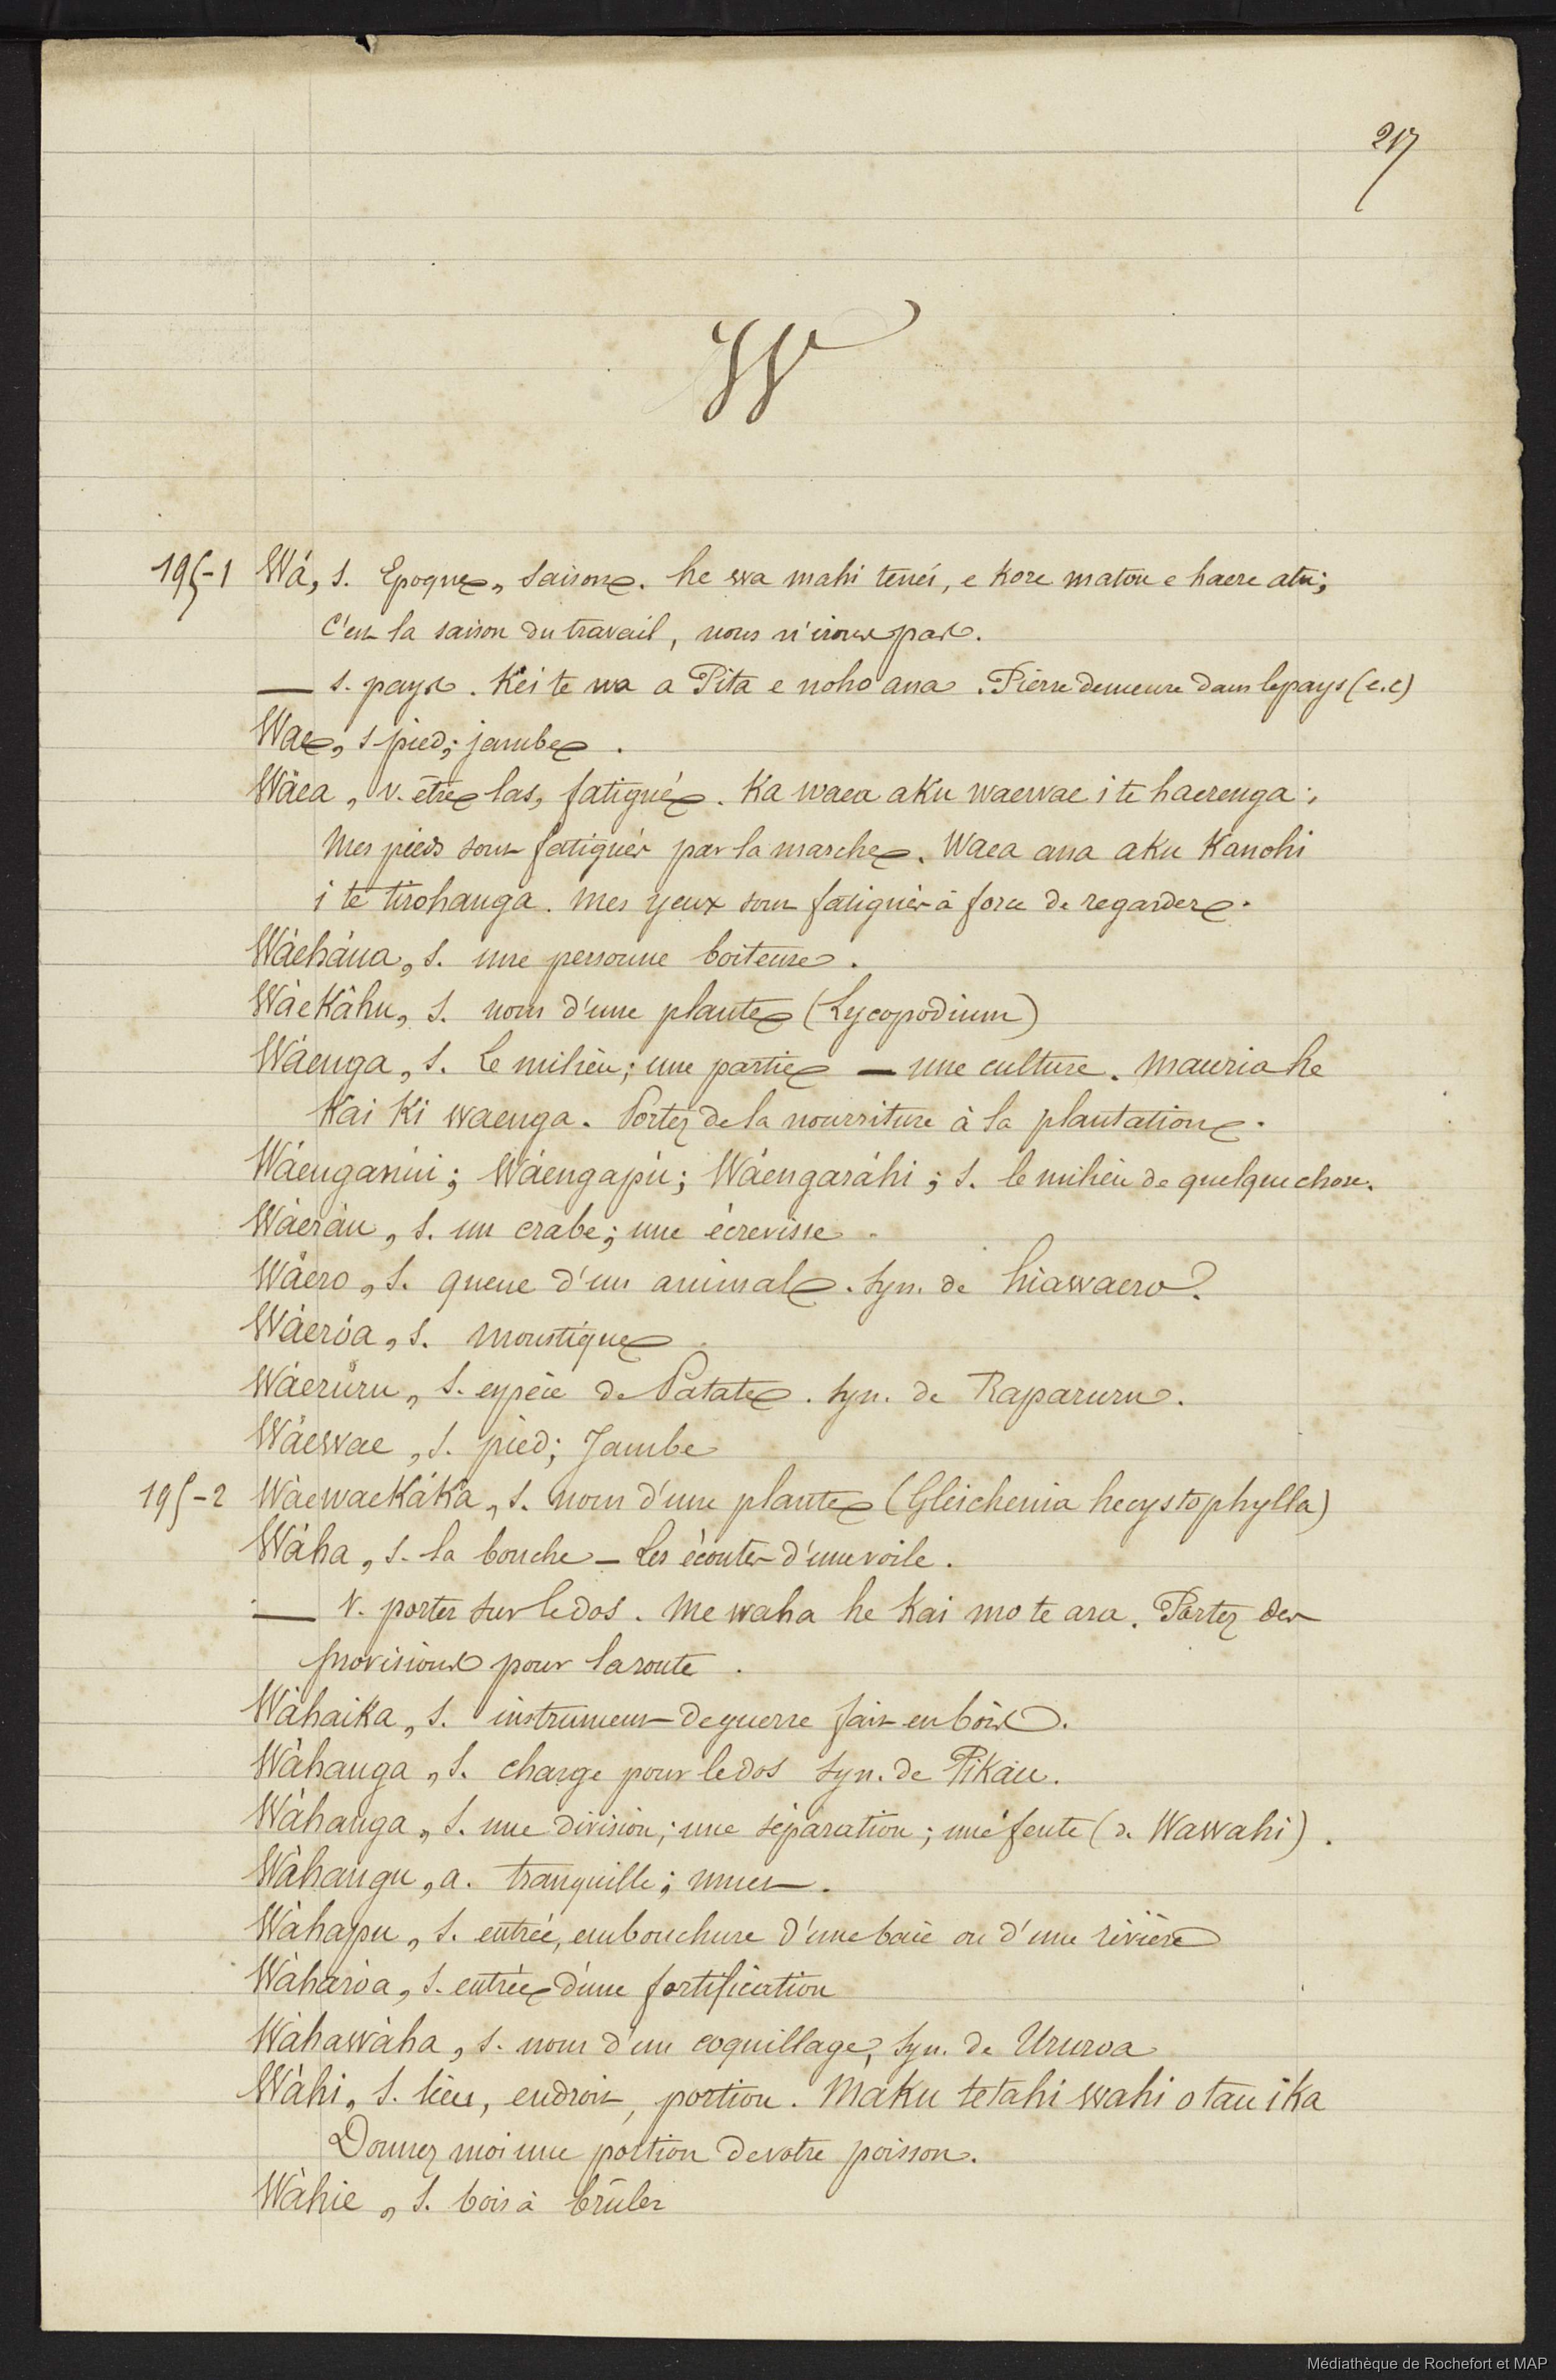 217
W
195-1 Wá, s. Epoque, saison. he wa mahi tenei, e kore matou e haere atu;
C'est la saison du travail, nous n'irons pas.
— s. pays. Kei te wa a Pita e noho ana. Pierre demeure dans le pays (e.c)
Wae, s pied; jambe.
Wäea, v. être las, fatigué. Ka waea aku waewae i te haerenga;
Mes pieds sont fatigués par la marche. Waea ana aku Kanohi
i te tirohanga. Mes yeux sont fatigués à force de regarder.
Wáeháua, s. une personne boiteuse.
Wàekâhu, s. nom d'une plante (Lycopodium)
Wáenga, s. Le milieu; une partie — une culture. Mauria he
Kai Ki waenga. Portez de la nourriture à la plantation.
Wáenganúi; Wáengapù; Wáengaráhi; s. le milieu de quelque chose.
Wàeràu, s. un crabe; une écrevisse.
Wäero, s. queue d'un animal. Syn. de hiawaero.
Wáeróa, s. Moustique
Wáerüru, s. espèce de Patate. Syn. de Raparuru.
Wäewae, s. pied; Jambe
195-2 WàewaeKáKa, s. nom d'une plante (Gleichenia hecystophylla)
Wàha, s. la bouche – Les écoutes d'une voile.
— v. porter sur le dos. Me waha he Kai mo te ara. Portez des
provisions pour la route.
Wàhaika, s. instrument de guerre fait en bois.
Wàhanga, s. charge pour le dos Syn. de Pikau.
Wàhanga, s. une division; une séparation; une fente (de Wawahi).
Wàhangu, a. tranquille; muet.
Wàhapu, s. entrée, embouchure d'une baie ou d'une rivière
Wàharòa, s. entrée d'une fortification
Wàhawàha, s. nom d'un coquillage, Syn. de Ururoa
Wàhi, s. lieu, endroit, portion. Maku tetahi wahi o tau ika
Donnez moi une portion de votre poisson.
Wàhie, s. bois à brûler
Médiathèque de Rochefort et MAP